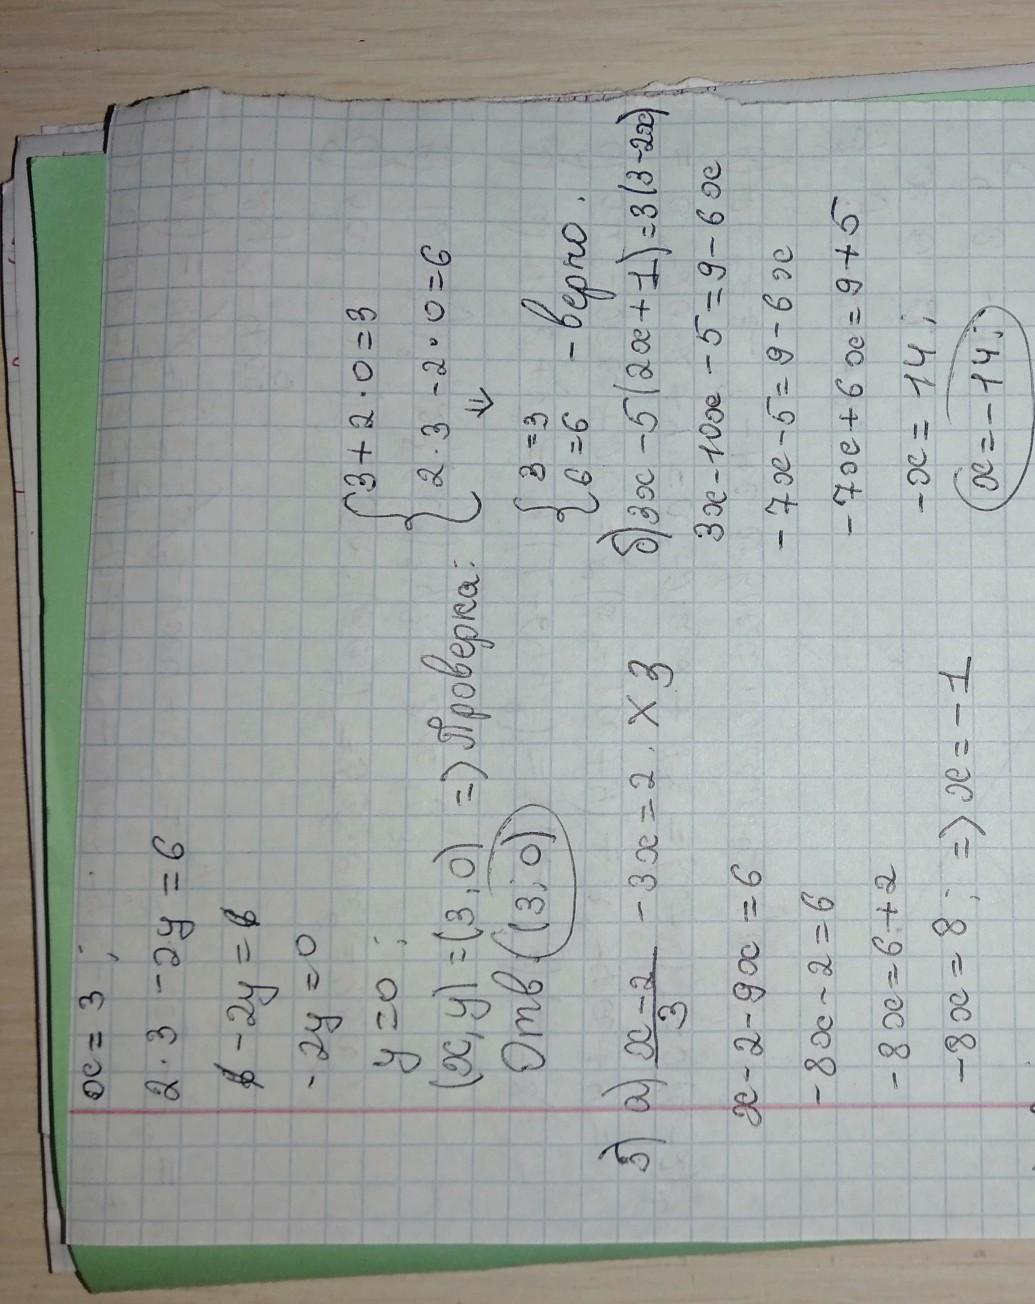 x = 3 ;
2 · 3 - 2y = 6
6 - 2y = 6
- 2y = 0
y = 0 ;
(x, y) = (3, 0) => Проверка:
{ 3 + 2 · 0 = 3
2 · 3 - 2 · 0 = 6
⇓
{ 3 = 3
6 = 6 - верно.
Отв (3; 0)
5) а) x - 2 / 3 - 3x = 2. × 3
x - 2 - 9x = 6
- 8x - 2 = 6
- 8x = 6 + 2
- 8x = 8; => x = - 1
б) 3x - 5(2x + 1) = 3(3 - 2x)
3x - 10x - 5 = 9 - 6x
- 7x - 5 = 9 - 6x
- 7x + 6x = 9 + 5
- x = 14;
x = - 14;